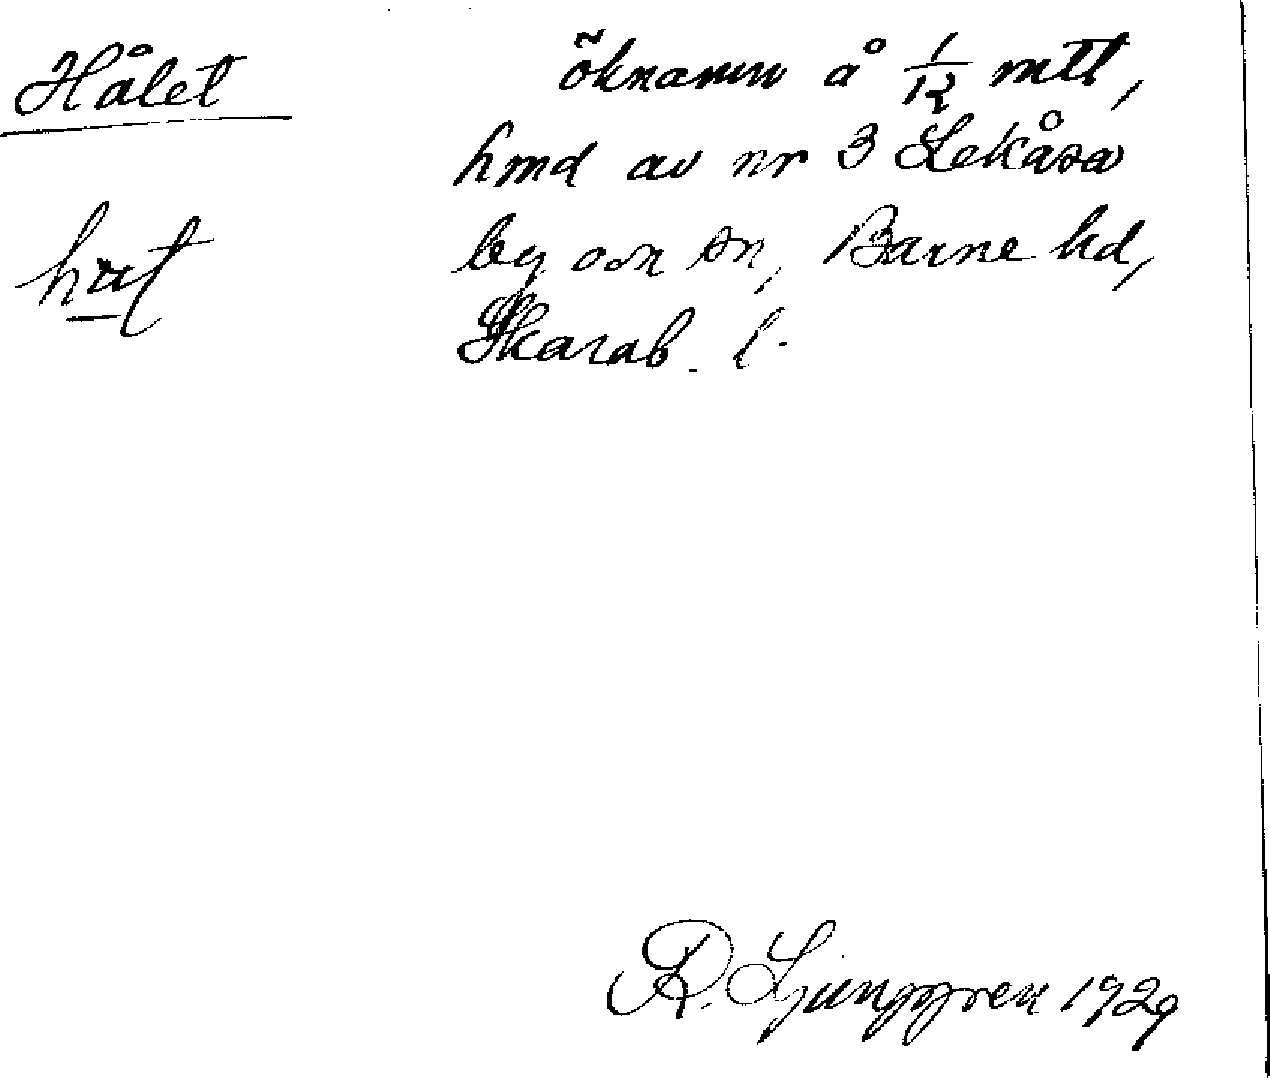 Hålet
öknamn å 1/12 mtl,
hmd av nr 3 Lekåsa
by och sn, Barne hd,
Skarab. l.
R. Ljunggren 1929